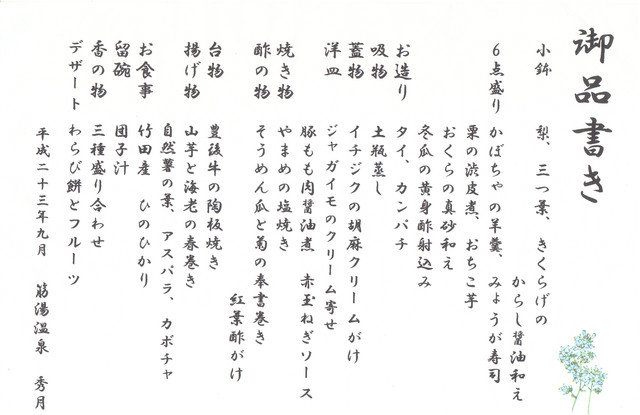 御品書き
小鉢 梨、三つ葉、きくらげの
からし醤油和え
6点盛り かぼちゃの羊羹、みょうが寿司
栗の渋皮煮、おちこ芋
おくらの真砂和え
冬瓜の黄身酢射込み
お造り タイ、カンパチ
吸物 土瓶蒸し
蓋物 イチジクの胡麻クリームがけ
洋皿 ジャガイモのクリーム寄せ
豚もも肉醤油煮 赤玉ねぎソース
焼き物 やまめの塩焼き
酢の物 そうめん瓜と菊の奉書巻き
紅葉酢がけ
台物 豊後牛の陶板焼き
揚げ物 山芋と海老の春巻き
自然薯の葉、アスパラ、カボチャ
お食事 竹田産 ひのひかり
留碗 団子汁
香の物 三種盛り合わせ
デザート わらび餅とフルーツ
平成二十三年九月 筋湯温泉 秀月